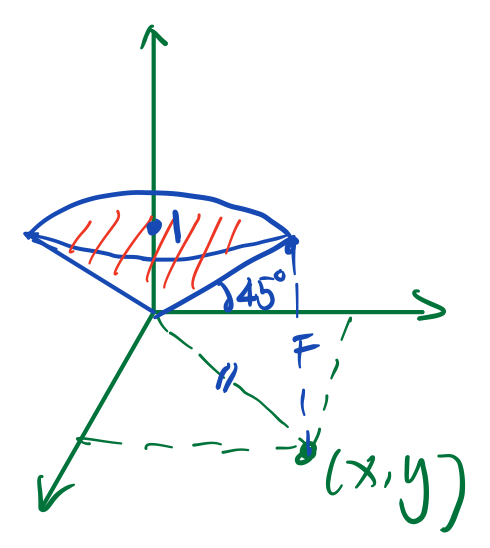 1
45°
F
(x,y)